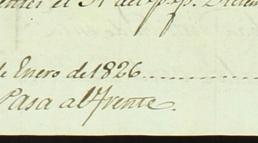 el 31 del
de Enero de 1826
Pasa al frente.